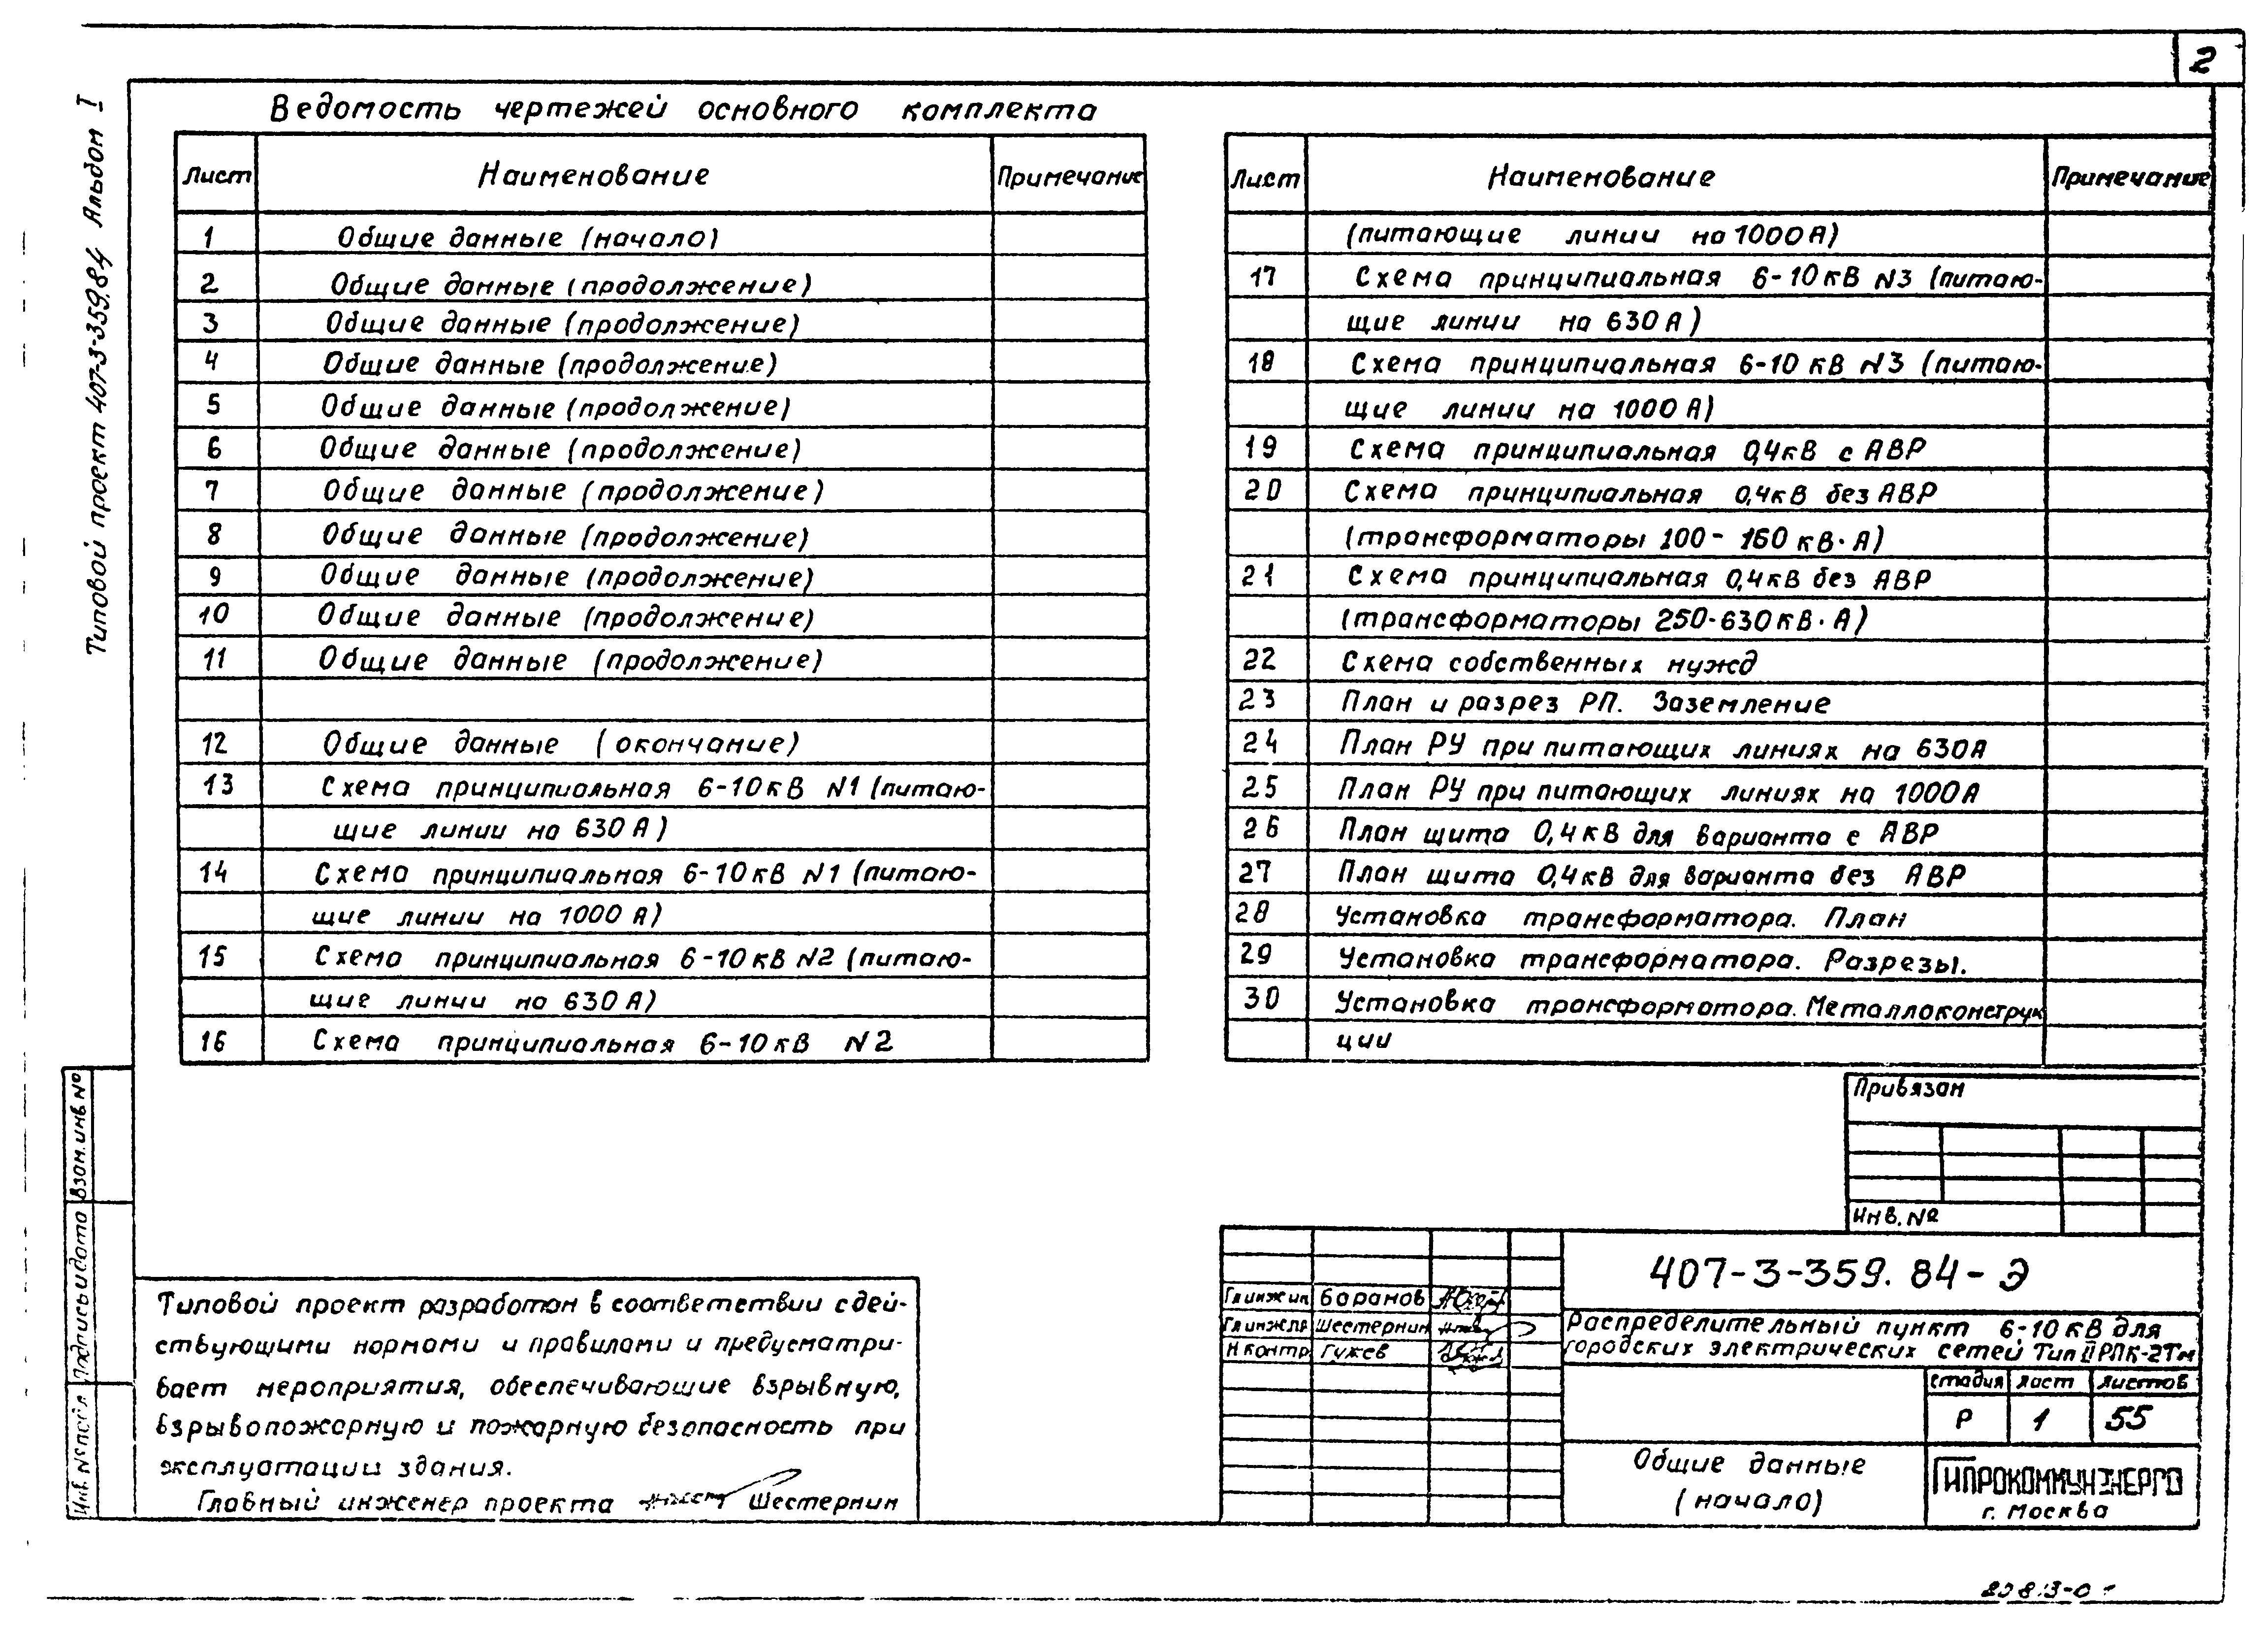 2
Типовой проект 407-3-359.84 Альбом I
Ведомость чертежей основного комплекта
Лист Наименование Примечание
1 Общие данные (начало)
2 Общие данные (продолжение)
3 Общие данные (продолжение)
4 Общие данные (продолжение)
5 Общие данные (продолжение)
6 Общие данные (продолжение)
7 Общие данные (продолжение)
8 Общие данные (продолжение)
9 Общие данные (продолжение)
10 Общие данные (продолжение)
11 Общие данные (продолжение)
12 Общие данные (окончание)
13 Схема принципиальная 6-10кВ N1 (питаю-
щие линии на 630А)
14 Схема принципиальная 6-10кВ N1 (питаю-
щие линии на 1000А)
15 Схема принципиальная 6-10кВ N2 (питаю-
щие линии на 630А)
16 Схема принципиальная 6-10кВ N2
Лист Наименование Примечание
(питающие линии на 1000А)
17 Схема принципиальная 6-10кВ N3 (питаю-
щие линии на 630А)
18 Схема принципиальная 6-10кВ N3 (питаю-
щие линии на 1000А)
19 Схема принципиальная 0,4кВ с АВР
20 Схема принципиальная 0,4кВ без АВР
(трансформаторы 100-160кВ·А)
21 Схема принципиальная 0,4кВ без АВР
(трансформаторы 250-630кВ·А)
22 Схема собственных нужд
23 План и разрез РП. Заземление
24 План РУ при питающих линиях на 630А
25 План РУ при питающих линиях на 1000А
26 План щита 0,4кВ для варианта с АВР
27 План щита 0,4кВ для варианта без АВР
28 Установка трансформатора. План
29 Установка трансформатора. Разрезы.
30 Установка трансформатора. Металлоконструк
ции
Привязан
Инв.№
Взам.инв №
Подпись и дата
Инв.№ подл
Типовой проект разработан в соответствии с дей-
ствующими нормами и правилами и предусматри-
вает мероприятия, обеспечивающие взрывную,
взрывопожарную и пожарную безопасность при
эксплуатации здания.
Главный инженер проекта Шестернин
Гл инж ин Баранов
Гл инж пр Шестернин
Н контр Гужев
407-3-359.84-Э
Распределительный пункт 6-10кВ для
городских электрических сетей Тип II РПК-2Тм
стадия лист листов
Р 1 55
Общие данные
(начало)
ГИПРОКОММУНЭНЕРГО
г. Москва